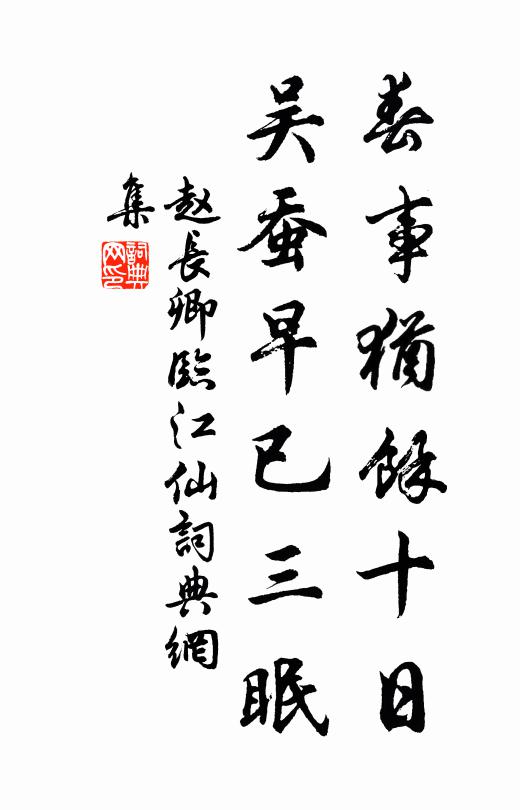 春事猶餘十日
吴蚕早已三眠
赵長卿臨江仙詞典網
集
詞典网印